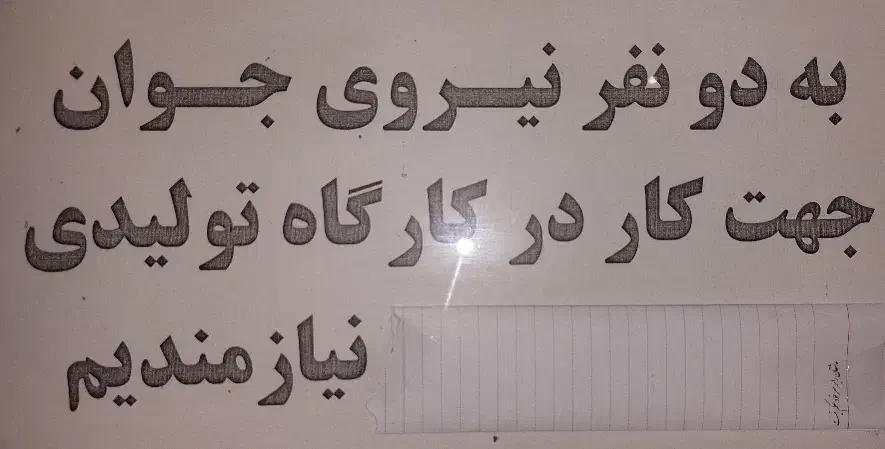 به دو نفر نیروی جوان
جهت کار در کارگاه تولیدی
نیازمندیم